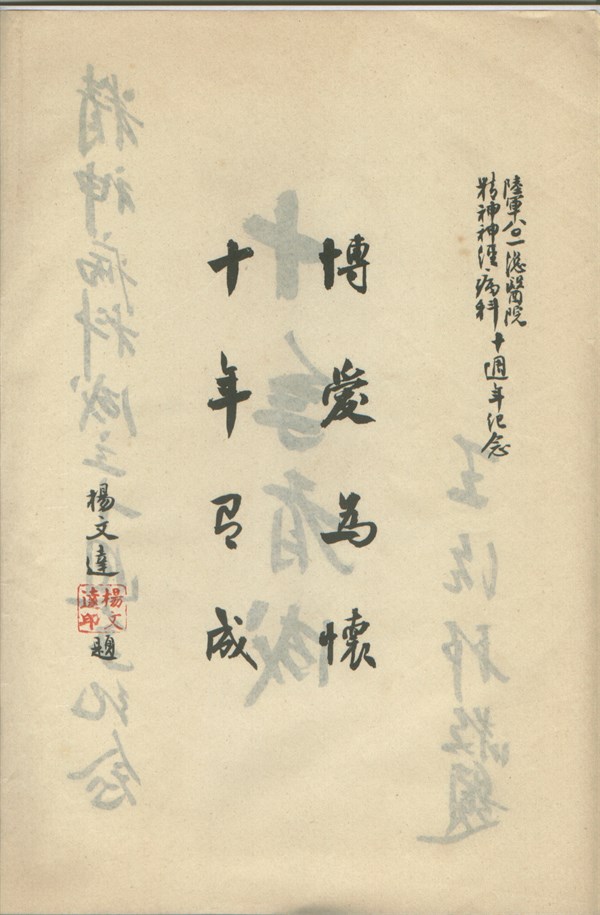 陸軍八〇一總醫院
精神神經病科十週年紀念
博愛為懷
十年有成
楊文達題
楊文達印